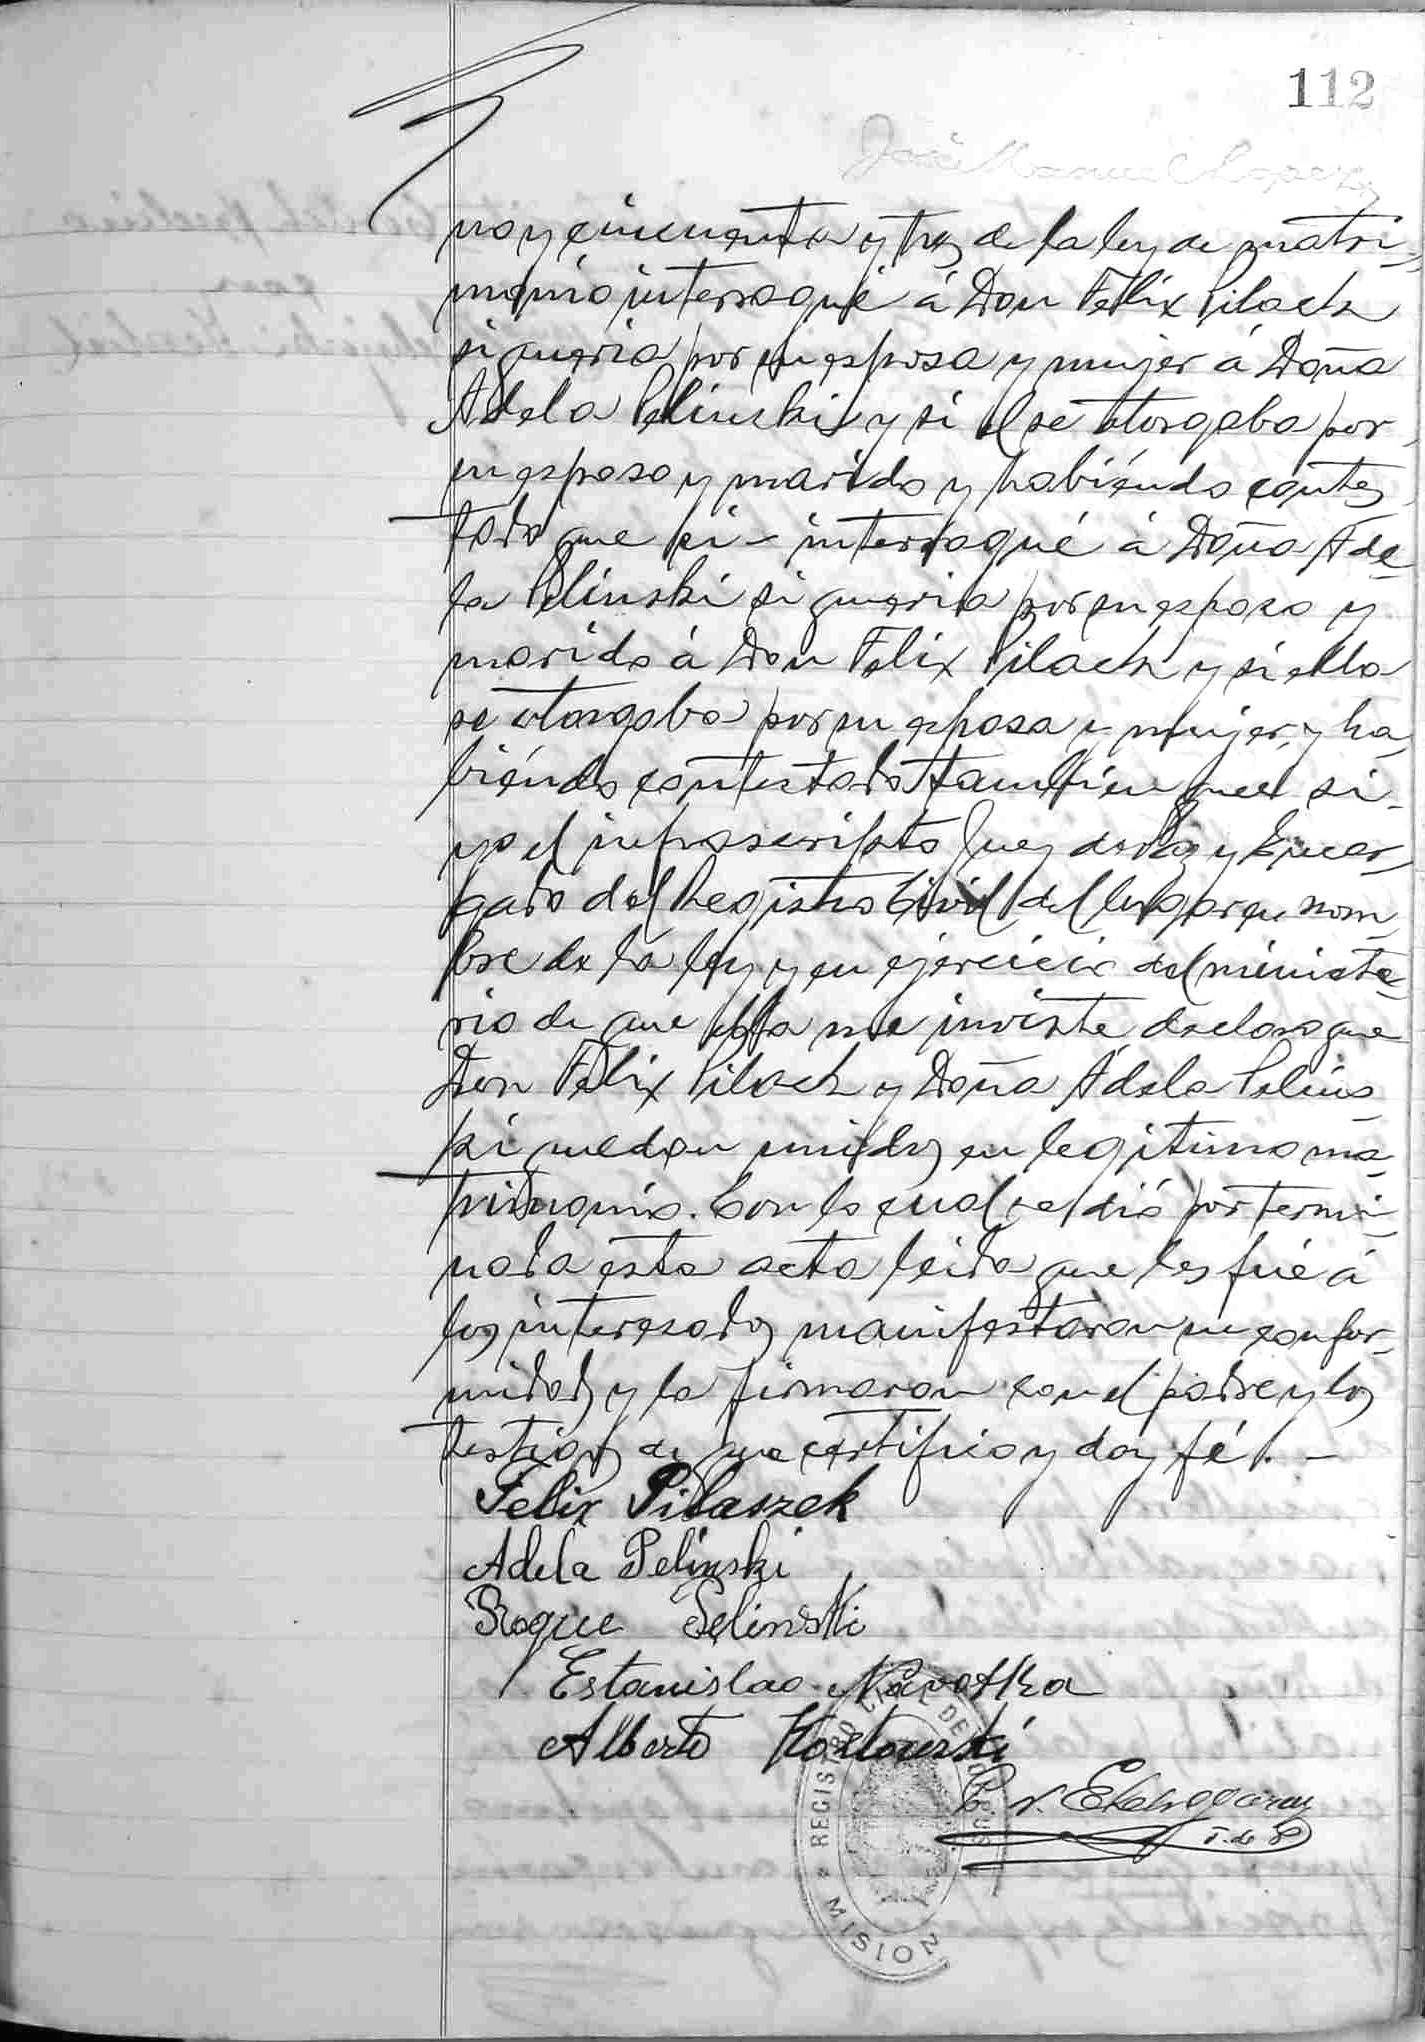 112
José Manuel Lopez
no y cincuenta y tres de la ley de matri-
monio interrogué á Don Felix Pilach
si queria por su esposa y mujer á Doña
Adela Pelinski y si el se otorgaba por
su esposo y marido y habiéndo contes
tado que si - interrogué á Doña Ade
la Pelinski si queria por su esposo y
marido á Don Felix Pilach y si ella
se otorgaba por su esposa y mujer, y ha
biéndo contestado tambien que si-
yo el infrascripto Juez de Paz y Encar
gado del Registro Civil del lugar en nom
bre de la ley y en ejercicio del ministe
rio de que ella me inviste declaro que
Don Felix Pilach y Doña Adela Pelins
ki quedan unidos en legitimo ma
trimonio. Con lo cual se dió por termi
nada esta acta leida que les fué á
los interesados manifestaron su confor-
midad y la firmaron con el padre y los
testigos de que certifico y doy fé. -
Felix Pilaszek
Adela Pelinski
Roque Pelinski
Estanislao Navotka
Alberto Kozlowski
J. de P
REGISTRO CIVIL DE
MISION